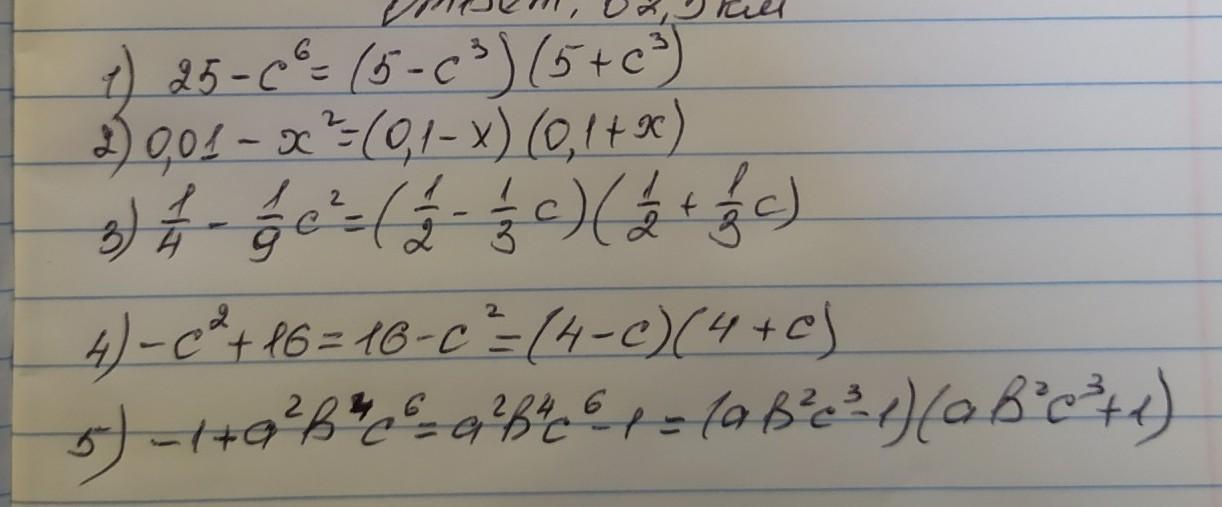 1) 25 - c⁶ = (5 - c³) (5 + c³)
2) 0,01 - x² = (0,1 - x) (0,1 + x)
3) 1/4 - 1/9 c² = (1/2 - 1/3 c) (1/2 + 1/3 c)
4) -c² + 16 = 16 - c² = (4 - c) (4 + c)
5) -1 + a²b⁴c⁶ = a²b⁴c⁶ - 1 = (ab²c³ - 1) (ab²c³ + 1)